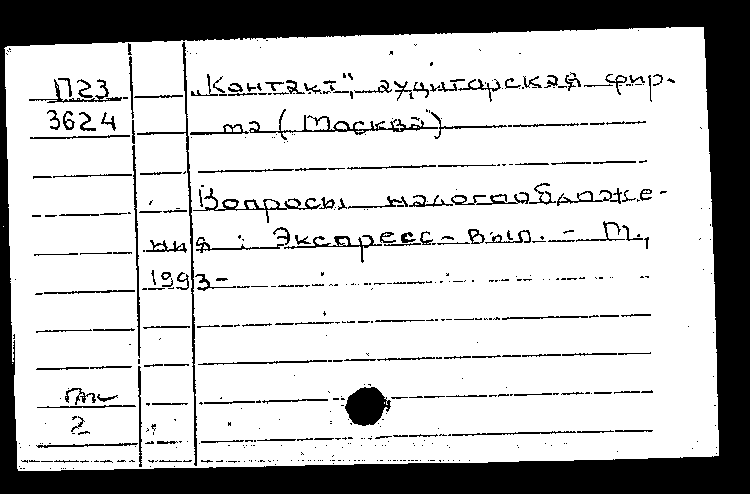 П23 „Контакт“, аудиторская фир-
3624 ма (Москва)
Вопросы налогообложе-
ния : Экспресс-вып. - М.,
1993-
2